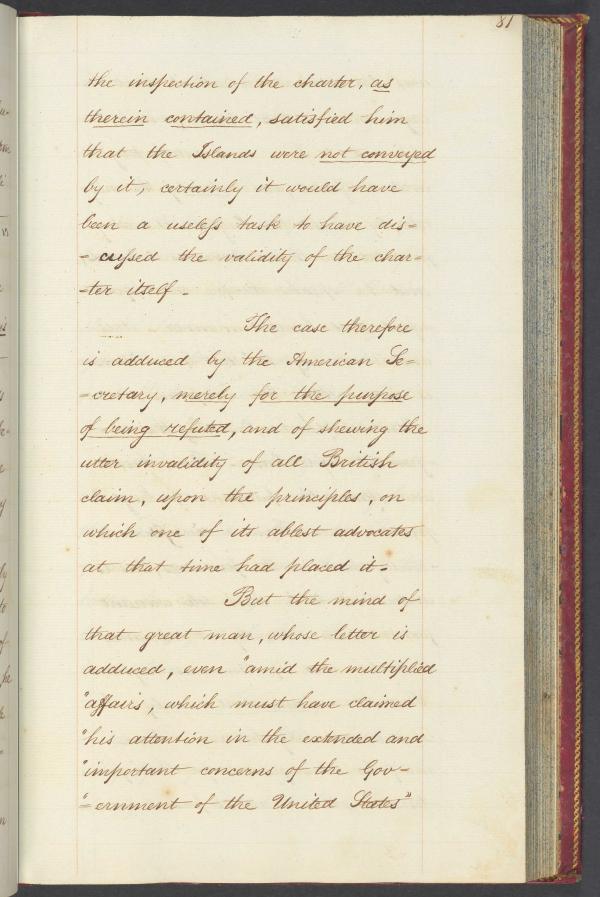 81
the inspection of the charter, as
therein contained, satisfied him
that the Islands were not conveyed
by it, certainly it would have
been a useless task to have dis=
= cussed the validity of the char=
=ter itself -
The case therefore
is adduced by the American Se=
=cretary, merely for the purpose
of being refuted, and of shewing the
utter invalidity of all British
claim, upon the principles, on
which one of its ablest advocates
at that time had placed it.
But the mind of
that great man, whose letter is
adduced, even "amid the multiplied
"affairs, which must have claimed
"his attention in the extended and
"important concerns of the Gov=
"=ernment of the United States"